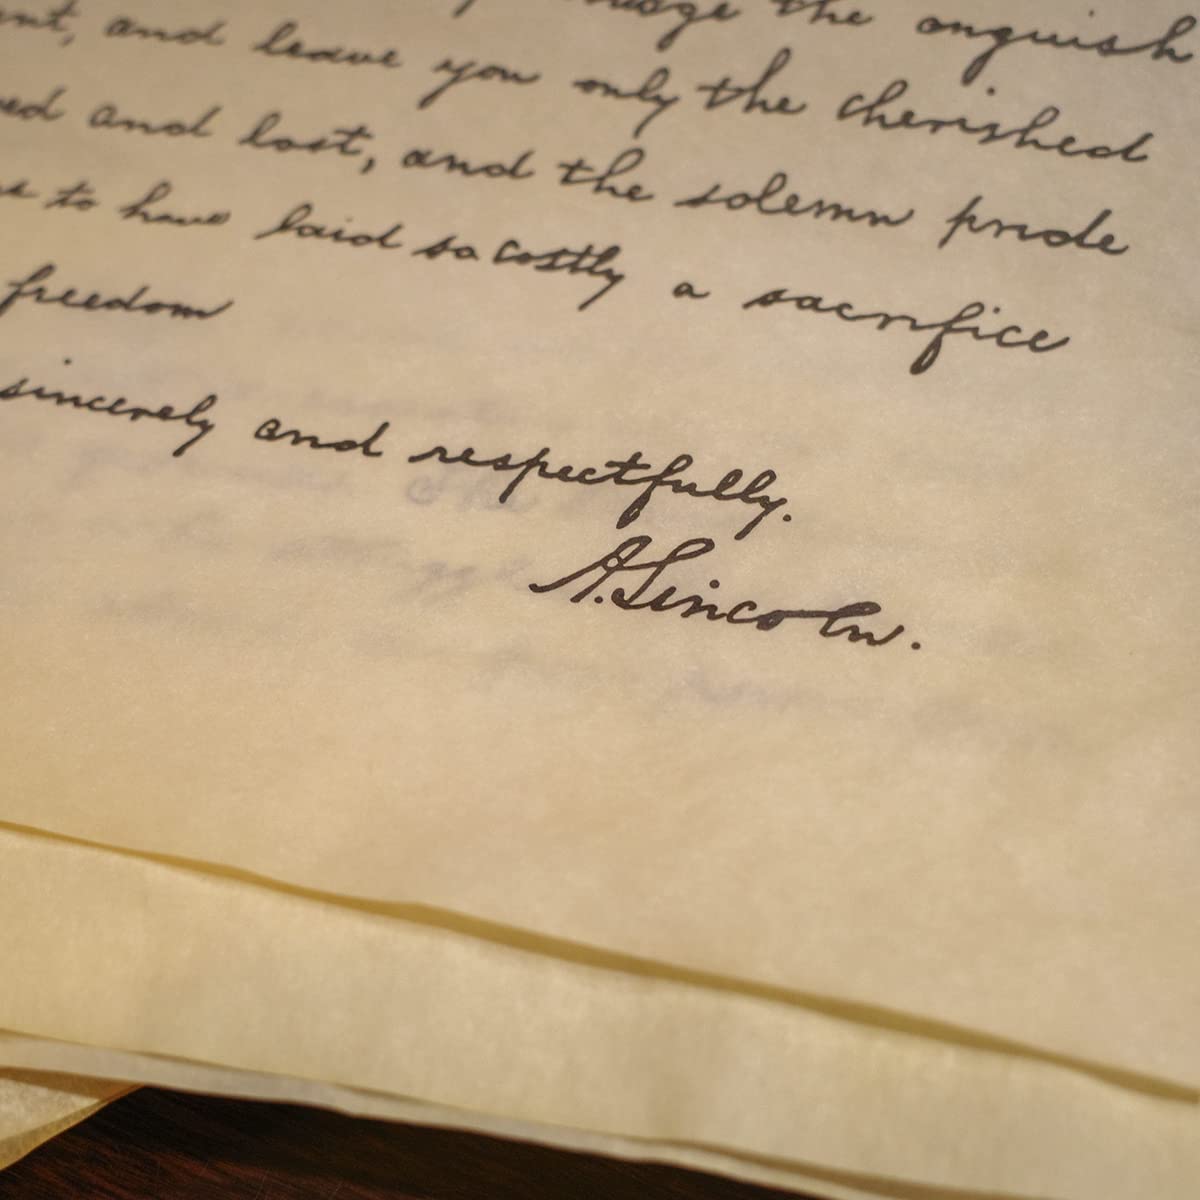 the anguish
and leave you only the cherished
and lost, and the solemn pride
to have laid so costly a sacrifice
freedom
sincerely and respectfully.
A. Lincoln.